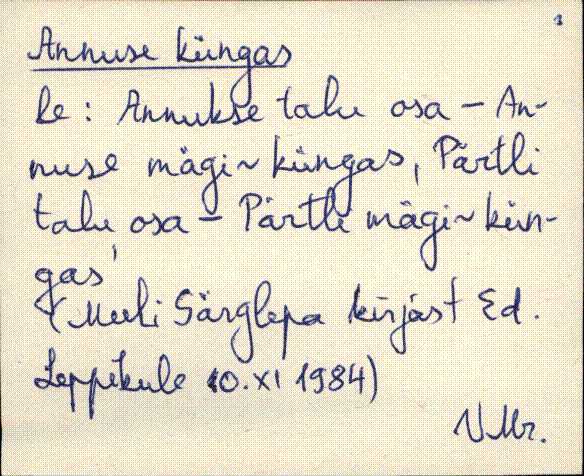 1
Annuse küngas
Re: Annukse talu osa - An-
nuse mägi ~ küngas, Pärtli
talu osa - Pärtli mägi ~ kün-
gas
(Meeli Särglepa kirjast Ed.
Leppikule 10.XI 1984)
VMr.